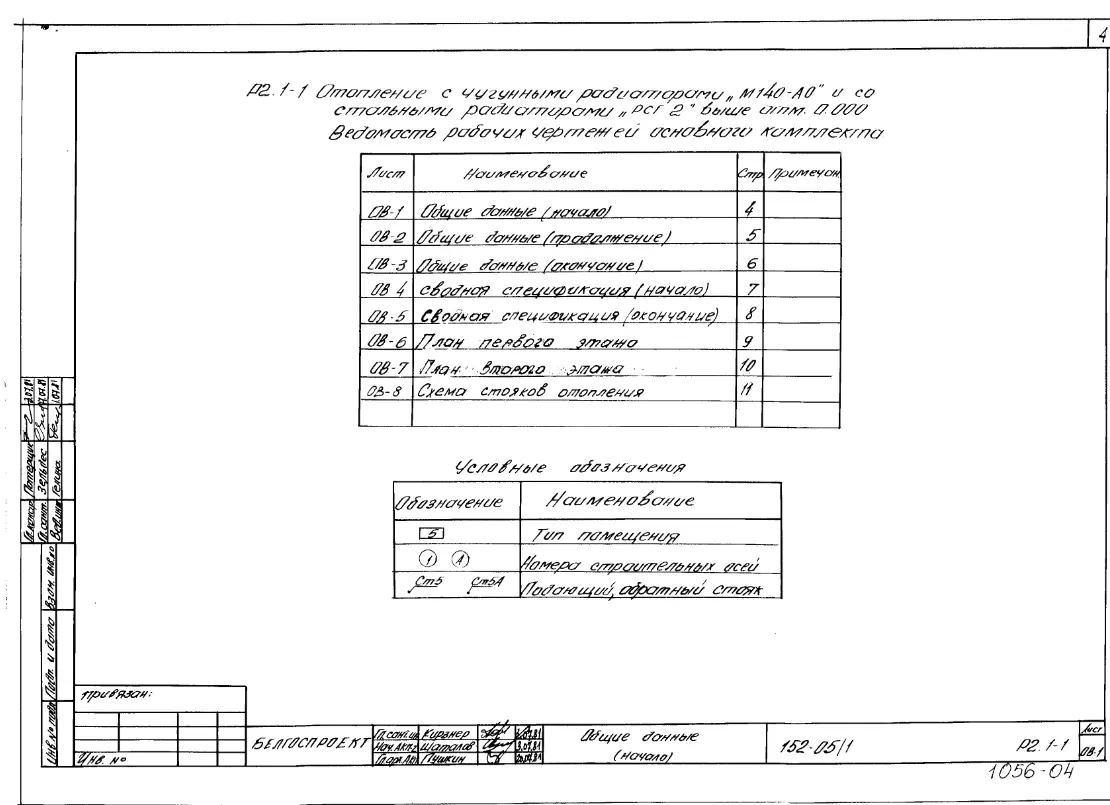 4
Р2.1-1 Отопление с чугунными радиаторами „М140-АО" и со
стальными радиаторами „РСГ 2" выше отм. 0.000
Ведомость рабочих чертежей основного комплекта
Лист Наименование Стр Примечан
ОВ-1 Общие данные (начало) 4
ОВ-2 Общие данные (продолжение) 5
ОВ-3 Общие данные (окончание) 6
ОВ 4 Сводная спецификация (начало) 7
ОВ-5 Сводная спецификация (окончание) 8
ОВ-6 План первого этажа 9
ОВ-7 План второго этажа 10
ОВ-8 Схема стояков отопления 11
Условные обозначения
Обозначение Наименование
5 Тип помещения
1 А Номера строительных осей
Ст5 Ст5А Подающий, обратный стояк
Гл. сант. Зельдес
Гелина
Взам. инв. №
Подп. и дата
Инв. № подл.
Привязан:
Инв. №
БЕЛГОСПРОЕКТ
Кирзнер
Шаталов
Пушкин
Общие данные
(начало)
152-05/1
Р2.1-1
Лист
ОВ-1
1056-04